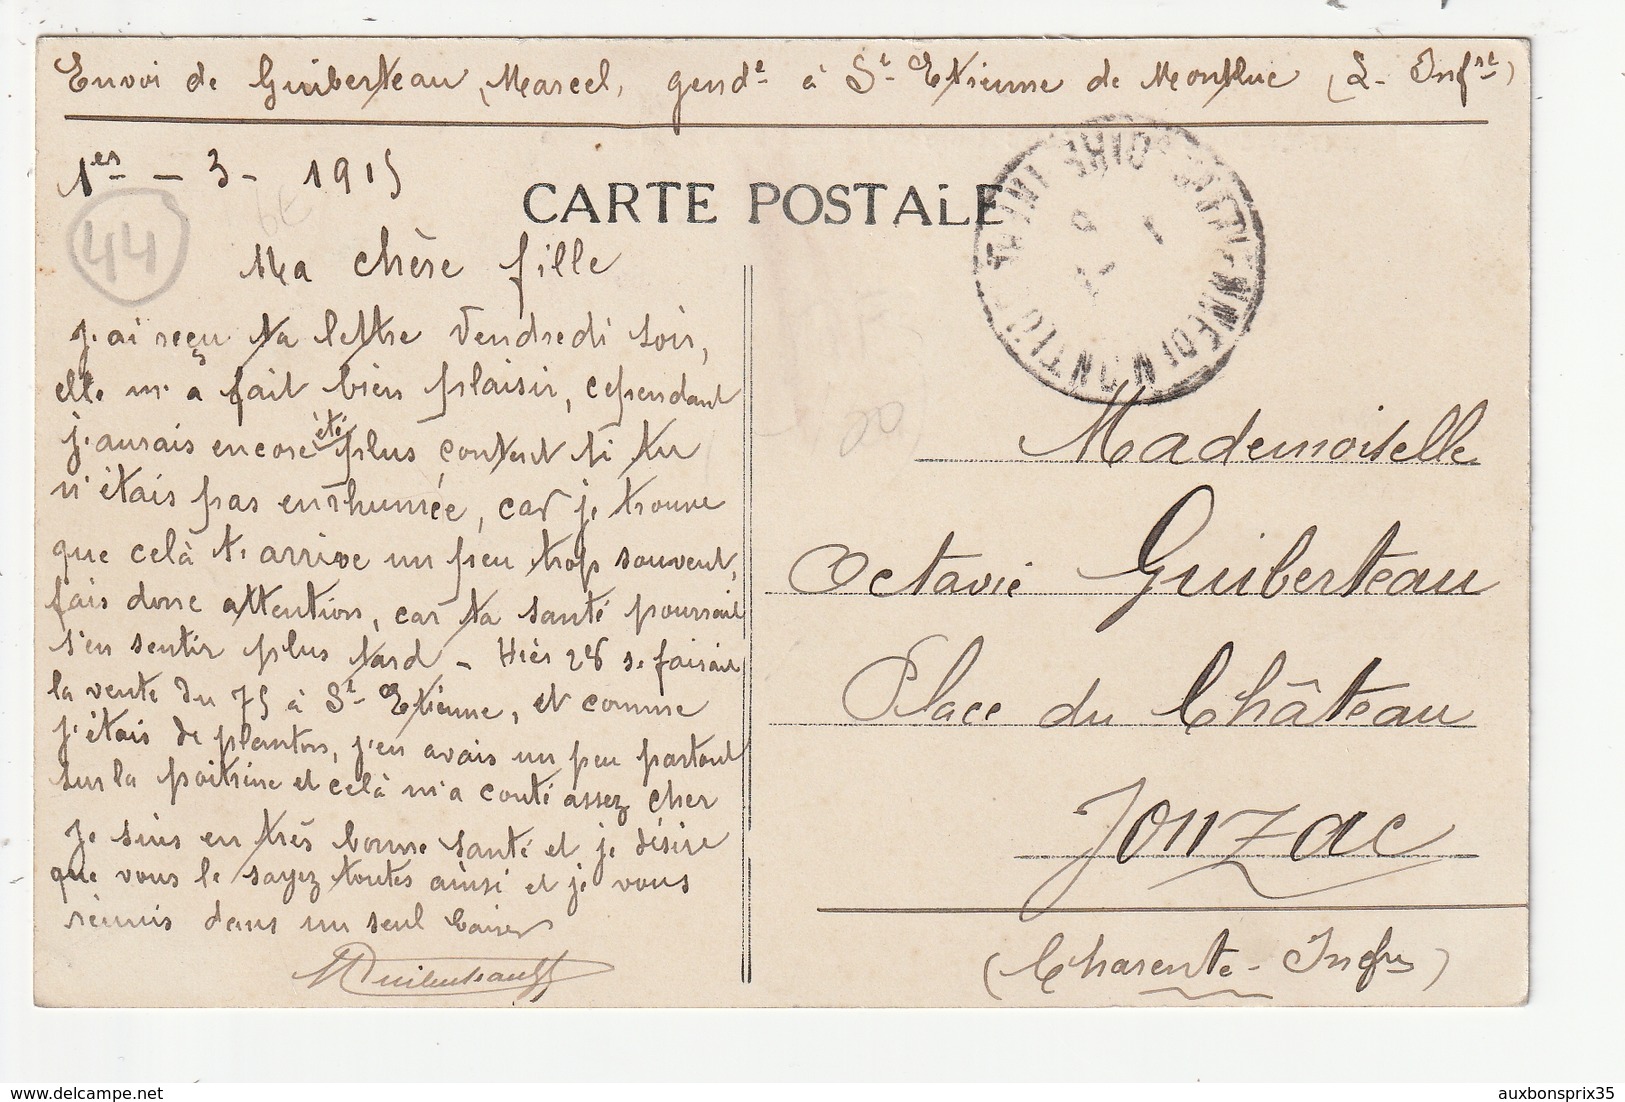 Envoi de Guiberteau, Marcel, gende à St Etienne de Montluc (L. Infre)
1er - 3 - 1915
CARTE POSTALE
44
Ma chère fille
J'ai reçu ta lettre Vendredi soir,
elle m'a fait bien plaisir, cependant
j'aurais encore été plus content si tu
n'étais pas enrhumée, car je trouve
que celà t'arrive un peu trop souvent,
fais donc attention, car ta santé pourrait
s'en sentir plus tard - Hier 28 se faisait
la vente du 75 à St Etienne, et comme
j'étais de planton, j'en avais un peu partout
sur la poitrine et celà m'a couté assez cher
Je suis en très bonne santé et je désire
que vous le soyez toutes ainsi et je vous
réunis dans un seul baiser
MGuiberteau
Mademoiselle
Octavie Guiberteau
Place du Château
Jonzac
(Charente-Infre)
20
auxbonsprix35